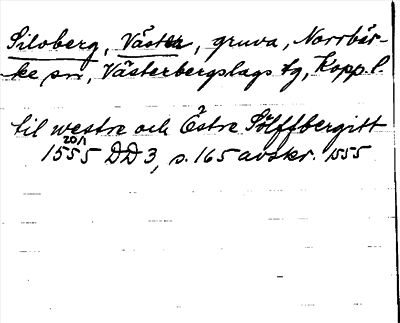 Siloberg, Västra, gruva, Norrbär-
ke sn, Västerbergslags tg, Kopp.l.
til westre och Östre Sölffbergitt
20/1
1555 DD 3, s. 165 avskr. 1555